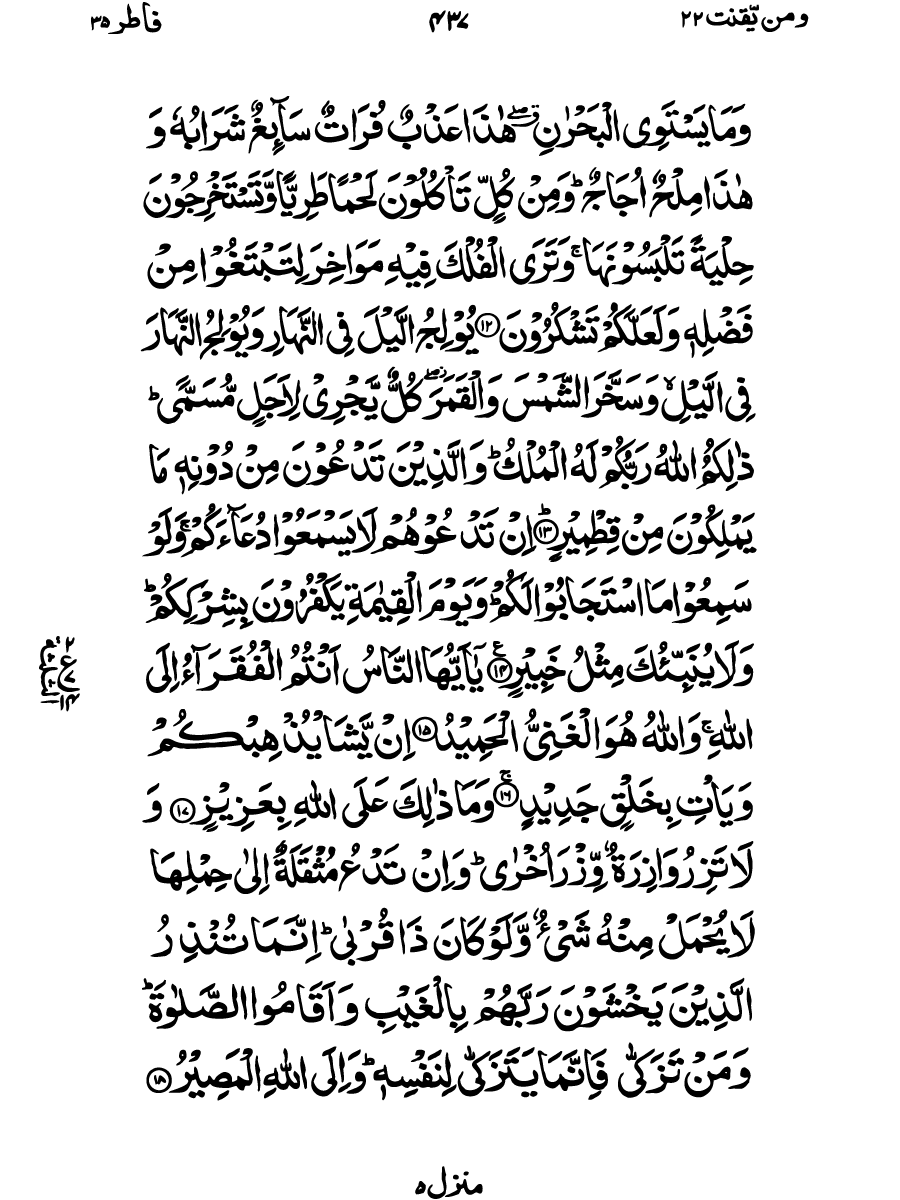 ومن یقنت ۲۲
۴۳۷
فاطر ۳۵
وَمَا یَسْتَوِی الْبَحْرٰنِ ۖۗ هٰذَا عَذْبٌ فُرَاتٌ سَآىِٕغٌ شَرَابُهٗ وَ
هٰذَا مِلْحٌ اُجَاجٌ ؕ وَمِنْ كُلٍّ تَاْكُلُوْنَ لَحْمًا طَرِیًّا وَّتَسْتَخْرِجُوْنَ
حِلْیَةً تَلْبَسُوْنَهَا ۚ وَتَرَی الْفُلْكَ فِیْهِ مَوَاخِرَ لِتَبْتَغُوْا مِنْ
فَضْلِهٖ وَلَعَلَّكُمْ تَشْكُرُوْنَ ﴿۱۲﴾ یُوْلِجُ الَّیْلَ فِی النَّهَارِ وَیُوْلِجُ النَّهَارَ
فِی الَّیْلِ ۙ وَسَخَّرَ الشَّمْسَ وَالْقَمَرَ ۖؗ كُلٌّ یَّجْرِیْ لِاَجَلٍ مُّسَمًّی ؕ
ذٰلِكُمُ اللّٰهُ رَبُّكُمْ لَهُ الْمُلْكُ ؕ وَالَّذِیْنَ تَدْعُوْنَ مِنْ دُوْنِهٖ مَا
یَمْلِكُوْنَ مِنْ قِطْمِیْرٍ ﴿۱۳﴾ؕ اِنْ تَدْعُوْهُمْ لَا یَسْمَعُوْا دُعَآءَكُمْ ۚ وَلَوْ
سَمِعُوْا مَا اسْتَجَابُوْا لَكُمْ ؕ وَیَوْمَ الْقِیٰمَةِ یَكْفُرُوْنَ بِشِرْكِكُمْ ؕ
وَلَا یُنَبِّئُكَ مِثْلُ خَبِیْرٍ ﴿۱۴﴾ۧ یٰۤاَیُّهَا النَّاسُ اَنْتُمُ الْفُقَرَآءُ اِلَی
اللّٰهِ ۚ وَاللّٰهُ هُوَ الْغَنِیُّ الْحَمِیْدُ ﴿۱۵﴾ اِنْ یَّشَاْ یُذْهِبْكُمْ
وَیَاْتِ بِخَلْقٍ جَدِیْدٍ ﴿۱۶﴾ۚ وَمَا ذٰلِكَ عَلَی اللّٰهِ بِعَزِیْزٍ ﴿۱۷﴾ وَ
لَا تَزِرُ وَازِرَةٌ وِّزْرَ اُخْرٰی ؕ وَاِنْ تَدْعُ مُثْقَلَةٌ اِلٰی حِمْلِهَا
لَا یُحْمَلْ مِنْهُ شَیْءٌ وَّلَوْ كَانَ ذَا قُرْبٰی ؕ اِنَّمَا تُنْذِرُ
الَّذِیْنَ یَخْشَوْنَ رَبَّهُمْ بِالْغَیْبِ وَاَقَامُوا الصَّلٰوةَ ؕ
وَمَنْ تَزَكّٰی فَاِنَّمَا یَتَزَكّٰی لِنَفْسِهٖ ؕ وَاِلَی اللّٰهِ الْمَصِیْرُ ﴿۱۸﴾
منزل ۵